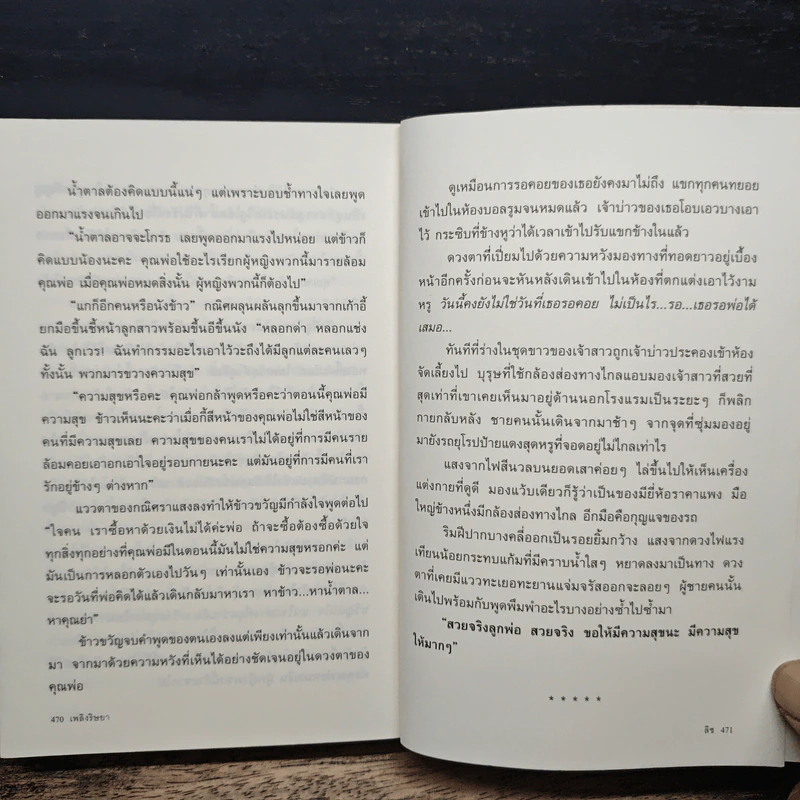 น้ำตาลต้องคิดแบบนี้แน่ๆ แต่เพราะบอบช้ำทางใจเลยพูด
ออกมาแรงจนเกินไป
“น้ำตาลอาจจะโกรธ เลยพูดออกมาแรงไปหน่อย แต่ข้าวก็
คิดแบบน้องนะคะ คุณพ่อใช้อะไรเรียกผู้หญิงพวกนี้มารายล้อม
คุณพ่อ เมื่อคุณพ่อหมดสิ่งนั้น ผู้หญิงพวกนี้ก็ต้องไป”
“แกก็อีกคนหรือนังข้าว” กณิศผลุนผลันลุกขึ้นมาจากเก้าอี้
ยกมือขึ้นชี้หน้าลูกสาวพร้อมขึ้นอีขึ้นนัง “หลอกด่า หลอกแช่ง
ฉัน ลูกเวร! ฉันทำกรรมอะไรเอาไว้วะถึงได้มีลูกแต่ละคนเลวๆ
ทั้งนั้น พวกมารขวางความสุข”
“ความสุขหรือคะ คุณพ่อกล้าพูดหรือคะว่าตอนนี้คุณพ่อมี
ความสุข ข้าวเห็นนะคะว่าเมื่อกี้สีหน้าของคุณพ่อไม่ใช่สีหน้าของ
คนที่มีความสุขเลย ความสุขของคนเราไม่ได้อยู่ที่การมีคนราย
ล้อมคอยเอาอกเอาใจอยู่รอบกายนะคะ แต่มันอยู่ที่การมีคนที่เรา
รักอยู่ข้างๆ ต่างหาก”
แววตาของกณิศราแสงลงทำให้ข้าวขวัญมีกำลังใจพูดต่อไป
“ใจคน เราซื้อหาด้วยเงินไม่ได้ค่ะพ่อ ถ้าจะซื้อต้องซื้อด้วยใจ
ทุกสิ่งทุกอย่างที่คุณพ่อมีในตอนนี้มันไม่ใช่ความสุขหรอกค่ะ แต่
มันเป็นการหลอกตัวเองไปวันๆ เท่านั้นเอง ข้าวจะรอพ่อนะคะ
จะรอวันที่พ่อคิดได้แล้วเดินกลับมาหาเรา หาข้าว...หาน้ำตาล...
หาคุณย่า”
ข้าวขวัญจบคำพูดของตนเองลงแต่เพียงเท่านั้นแล้วเดินจาก
มา จากมาด้วยความหวังที่เห็นได้อย่างชัดเจนอยู่ในดวงตาของ
คุณพ่อ
470 เพลิงริษยา
ดูเหมือนการรอคอยของเธอยังคงมาไม่ถึง แขกทุกคนทยอย
เข้าไปในห้องบอลรูมจนหมดแล้ว เจ้าบ่าวของเธอโอบเอวบางเอา
ไว้ กระซิบที่ข้างหูว่าได้เวลาเข้าไปรับแขกข้างในแล้ว
ดวงตาที่เปี่ยมไปด้วยความหวังมองทางที่ทอดยาวอยู่เบื้อง
หน้าอีกครั้งก่อนจะหันหลังเดินเข้าไปในห้องที่ตกแต่งเอาไว้งาม
หรู วันนี้คงยังไม่ใช่วันที่เธอรอคอย ไม่เป็นไร...รอ...เธอรอพ่อได้
เสมอ...
ทันทีที่ร่างในชุดขาวของเจ้าสาวถูกเจ้าบ่าวประคองเข้าห้อง
จัดเลี้ยงไป บุรุษที่ใช้กล้องส่องทางไกลแอบมองเจ้าสาวที่สวยที่
สุดเท่าที่เขาเคยเห็นมาอยู่ด้านนอกโรงแรมเป็นระยะๆ ก็พลิก
กายกลับหลัง ชายคนนั้นเดินจากมาช้าๆ จากจุดที่ซุ่มมองอยู่
มายังรถยุโรปป้ายแดงสุดหรูที่จอดอยู่ไม่ไกลเท่าไร
แสงจากไฟสีนวลบนยอดเสาค่อยๆ ไล่ขึ้นไปให้เห็นเครื่อง
แต่งกายที่ดูดี มองแว้บเดียวก็รู้ว่าเป็นของมียี่ห้อราคาแพง มือ
ใหญ่ข้างหนึ่งมีกล้องส่องทางไกล อีกมือคือกุญแจของรถ
ริมฝีปากบางคลี่ออกเป็นรอยยิ้มกว้าง แสงจากดวงไฟแรง
เทียนน้อยกระทบแก้มที่มีคราบน้ำใสๆ หยาดลงมาเป็นทาง ดวง
ตาที่เคยมีแววทะเยอทะยานแจ่มจรัสออกจะลอยๆ ผู้ชายคนนั้น
เดินไปพร้อมกับพูดพึมพำอะไรบางอย่างซ้ำไปซ้ำมา
“สวยจริงลูกพ่อ สวยจริง ขอให้มีความสุขนะ มีความสุข
ให้มากๆ”
* * * * *
ลิช 471